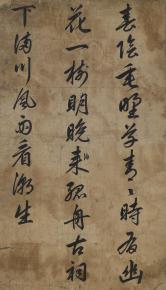 春陰垂野草青〻時有幽
花一樹明晚來孤舟古祠
下滿川風雨看潮生